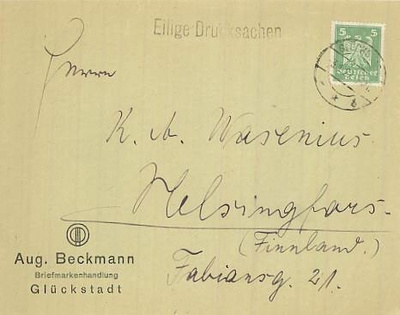 Eilige Drucksachen
5 5
Deutsches
Reich
Herrn
K. A. Wasenius
Helsingfors.
(Finnland.)
Fabiansg. 21.
Aug. Beckmann
Briefmarkenhandlung
Glückstadt